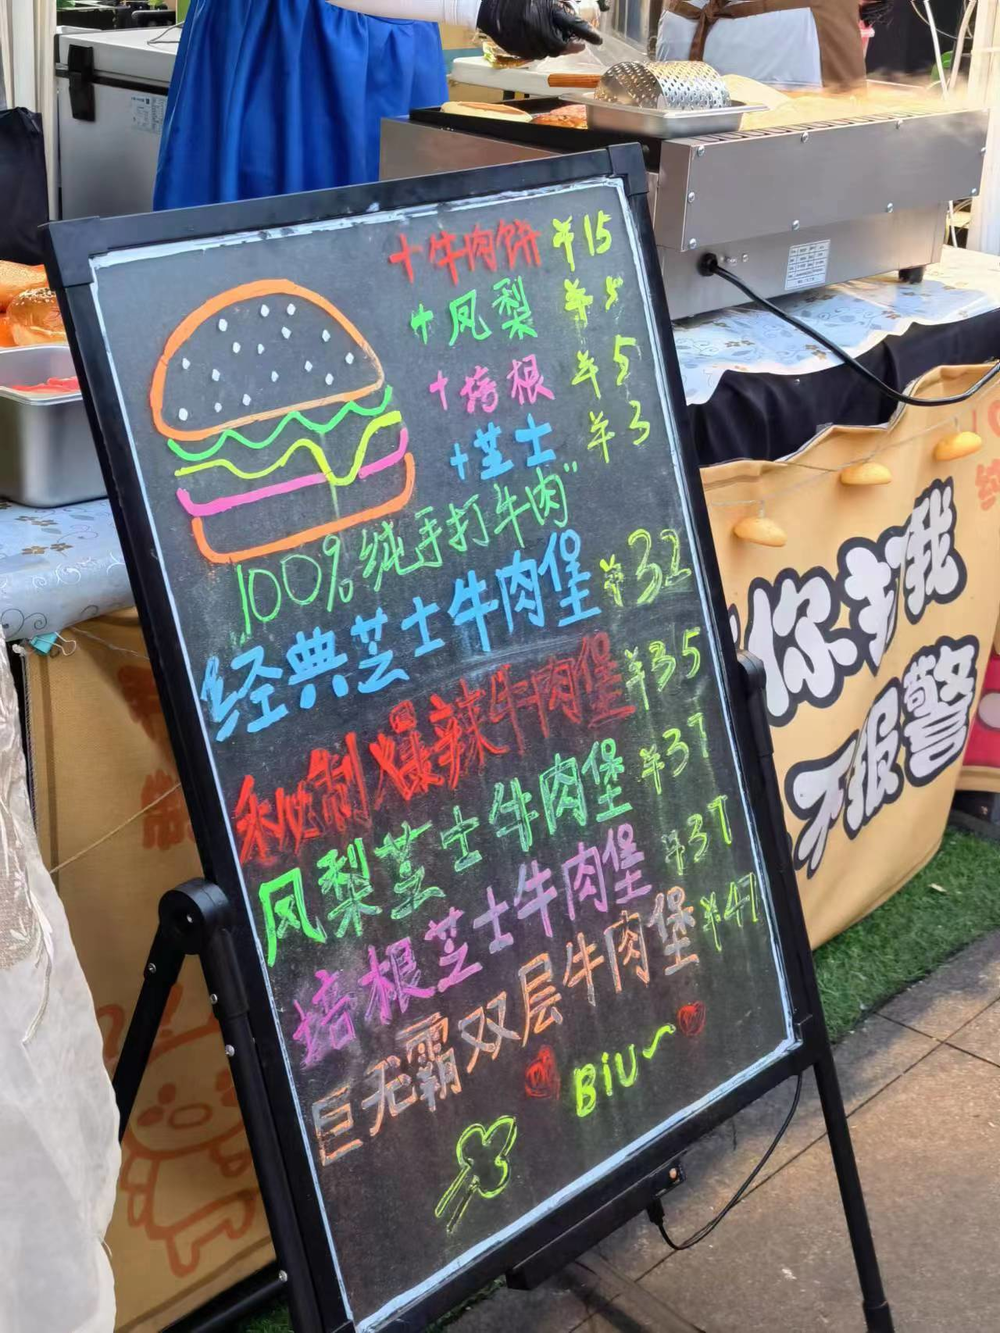 +牛肉饼 ¥15
+凤梨 ¥5
+烤根 ¥5
+芝士 ¥3
100%纯手打牛肉"
经典芝士牛肉堡 ¥32
秘制爆辣牛肉堡 ¥35
凤梨芝士牛肉堡 ¥37
培根芝士牛肉堡 ¥37
巨无霸双层牛肉堡 ¥47
BiU~
你打我
不报警